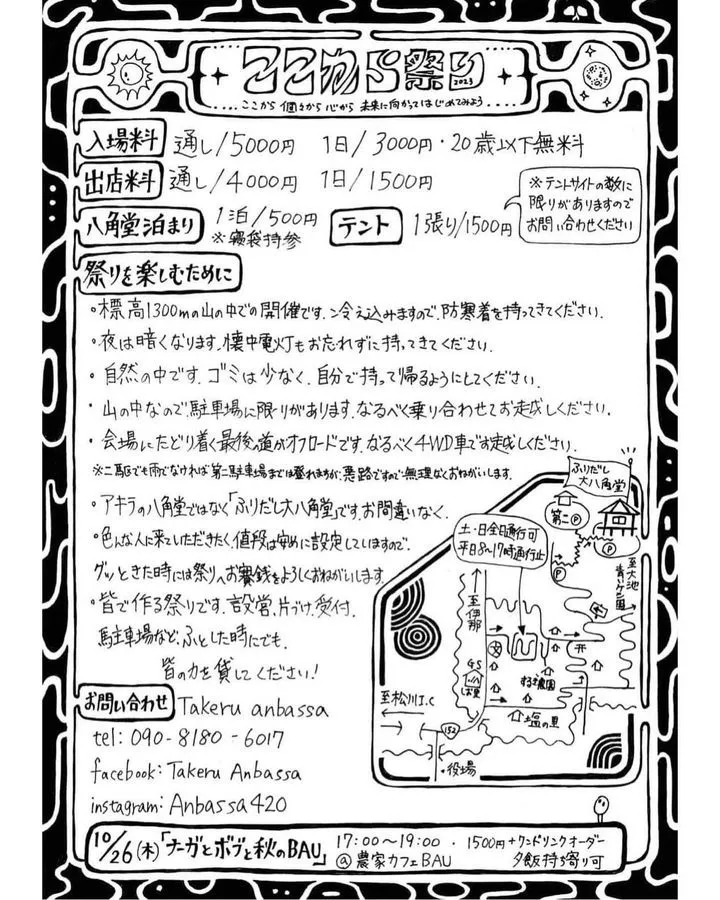 ここから祭り 2023
ここから 個々から 心から 未来に向かってはじめてみよう
入場料 通し/5000円 1日/3000円・20歳以下無料
出店料 通し/4000円 1日/1500円
※テントサイトの数に
限りがありますので
お問い合わせください
八角堂泊まり 1泊/500円 テント 1張り/1500円
※寝袋持参
祭りを楽しむために
・標高1300mの山の中での開催です.冷え込みますので、防寒着を持ってきてください.
・夜は暗くなります.懐中電灯もお忘れずに持ってきてください.
・自然の中です.ゴミは少なく、自分で持って帰るようにしてください.
・山の中なので、駐車場に限りがあります.なるべく乗り合わせてお越しください.
・会場にたどり着く最後の道がオフロードです.なるべく4WD車でお越しください.
※二駆でも雨でなければ第二駐車場までは登れますが、悪路ですので無理なくおねがいします.
・アキラの八角堂ではなく「ふりだし大八角堂」です.お間違いなく.
・色んな人に来ていただきたく、値段は安めに設定していますので、
グッときた時には祭りへお賽銭をよろしくおねがいします.
・皆で作る祭りです.設営、片づけ、受付、
駐車場など、ふとした時にでも、
皆の力を貸してください!
ふりだし
大八角堂
第二P
P
P
土・日全日通行可
平日8〜17時通行止
至大池
至伊那
文
GS
塩の里
至松川I.C
152
・役場
お問い合わせ Takeru anbassa
tel: 090-8180-6017
facebook: Takeru Anbassa
instagram: Anbassa420
10/26(木)「ナーガとボブと秋のBAU」 17:00〜19:00 ・ 1500円+ワンドリンクオーダー
@農家カフェBAU 夕飯持ち寄り可